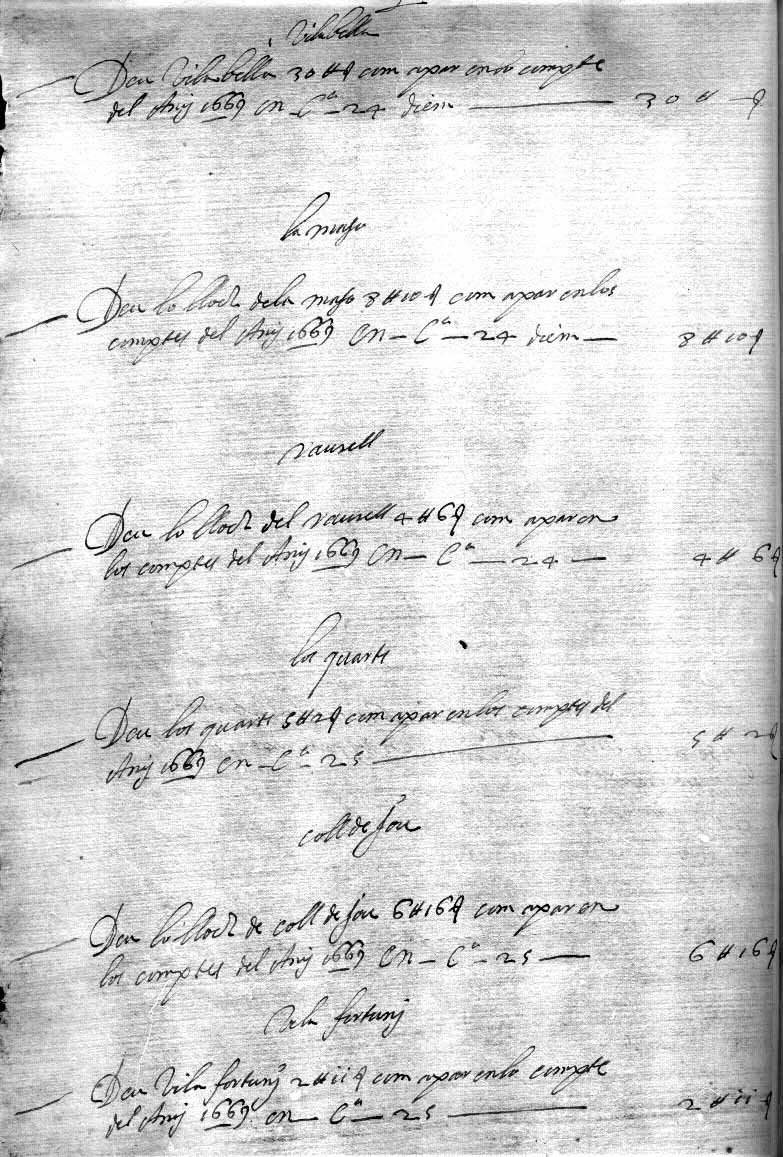 Vilabella
Deu Vilabella 30 ₶ ꝭ com apar en lo compte
del Any 1669 en — Cª — 24 diem — 30 ₶ — ꝭ
la maso
Deu lo lloch dela maso 8 ₶ 10 ꝭ com apar en los
comptes del Any 1669 en — Cª — 24 diem — 8 ₶ 10 ꝭ
raurell
Deu lo lloch del raurell 4 ₶ 6 ꝭ com apar en
los comptes del Any 1669 en — Cª — 24 — 4 ₶ 6 ꝭ
los quarts
Deu los quarts 5 ₶ 2 ꝭ com apar en los comptes del
Any 1669 en — Cª — 25 — 5 ₶ 2 ꝭ
coll de Jou
Deu lo lloch de coll de Jou 6 ₶ 16 ꝭ com apar en
los comptes del Any 1669 en — Cª — 25 — 6 ₶ 16 ꝭ
Vila fortunj
Deu Vila fortunj 2 ₶ ii ꝭ com apar en lo compte
del Any 1669 en — Cª — 25 — 2 ₶ ii ꝭ